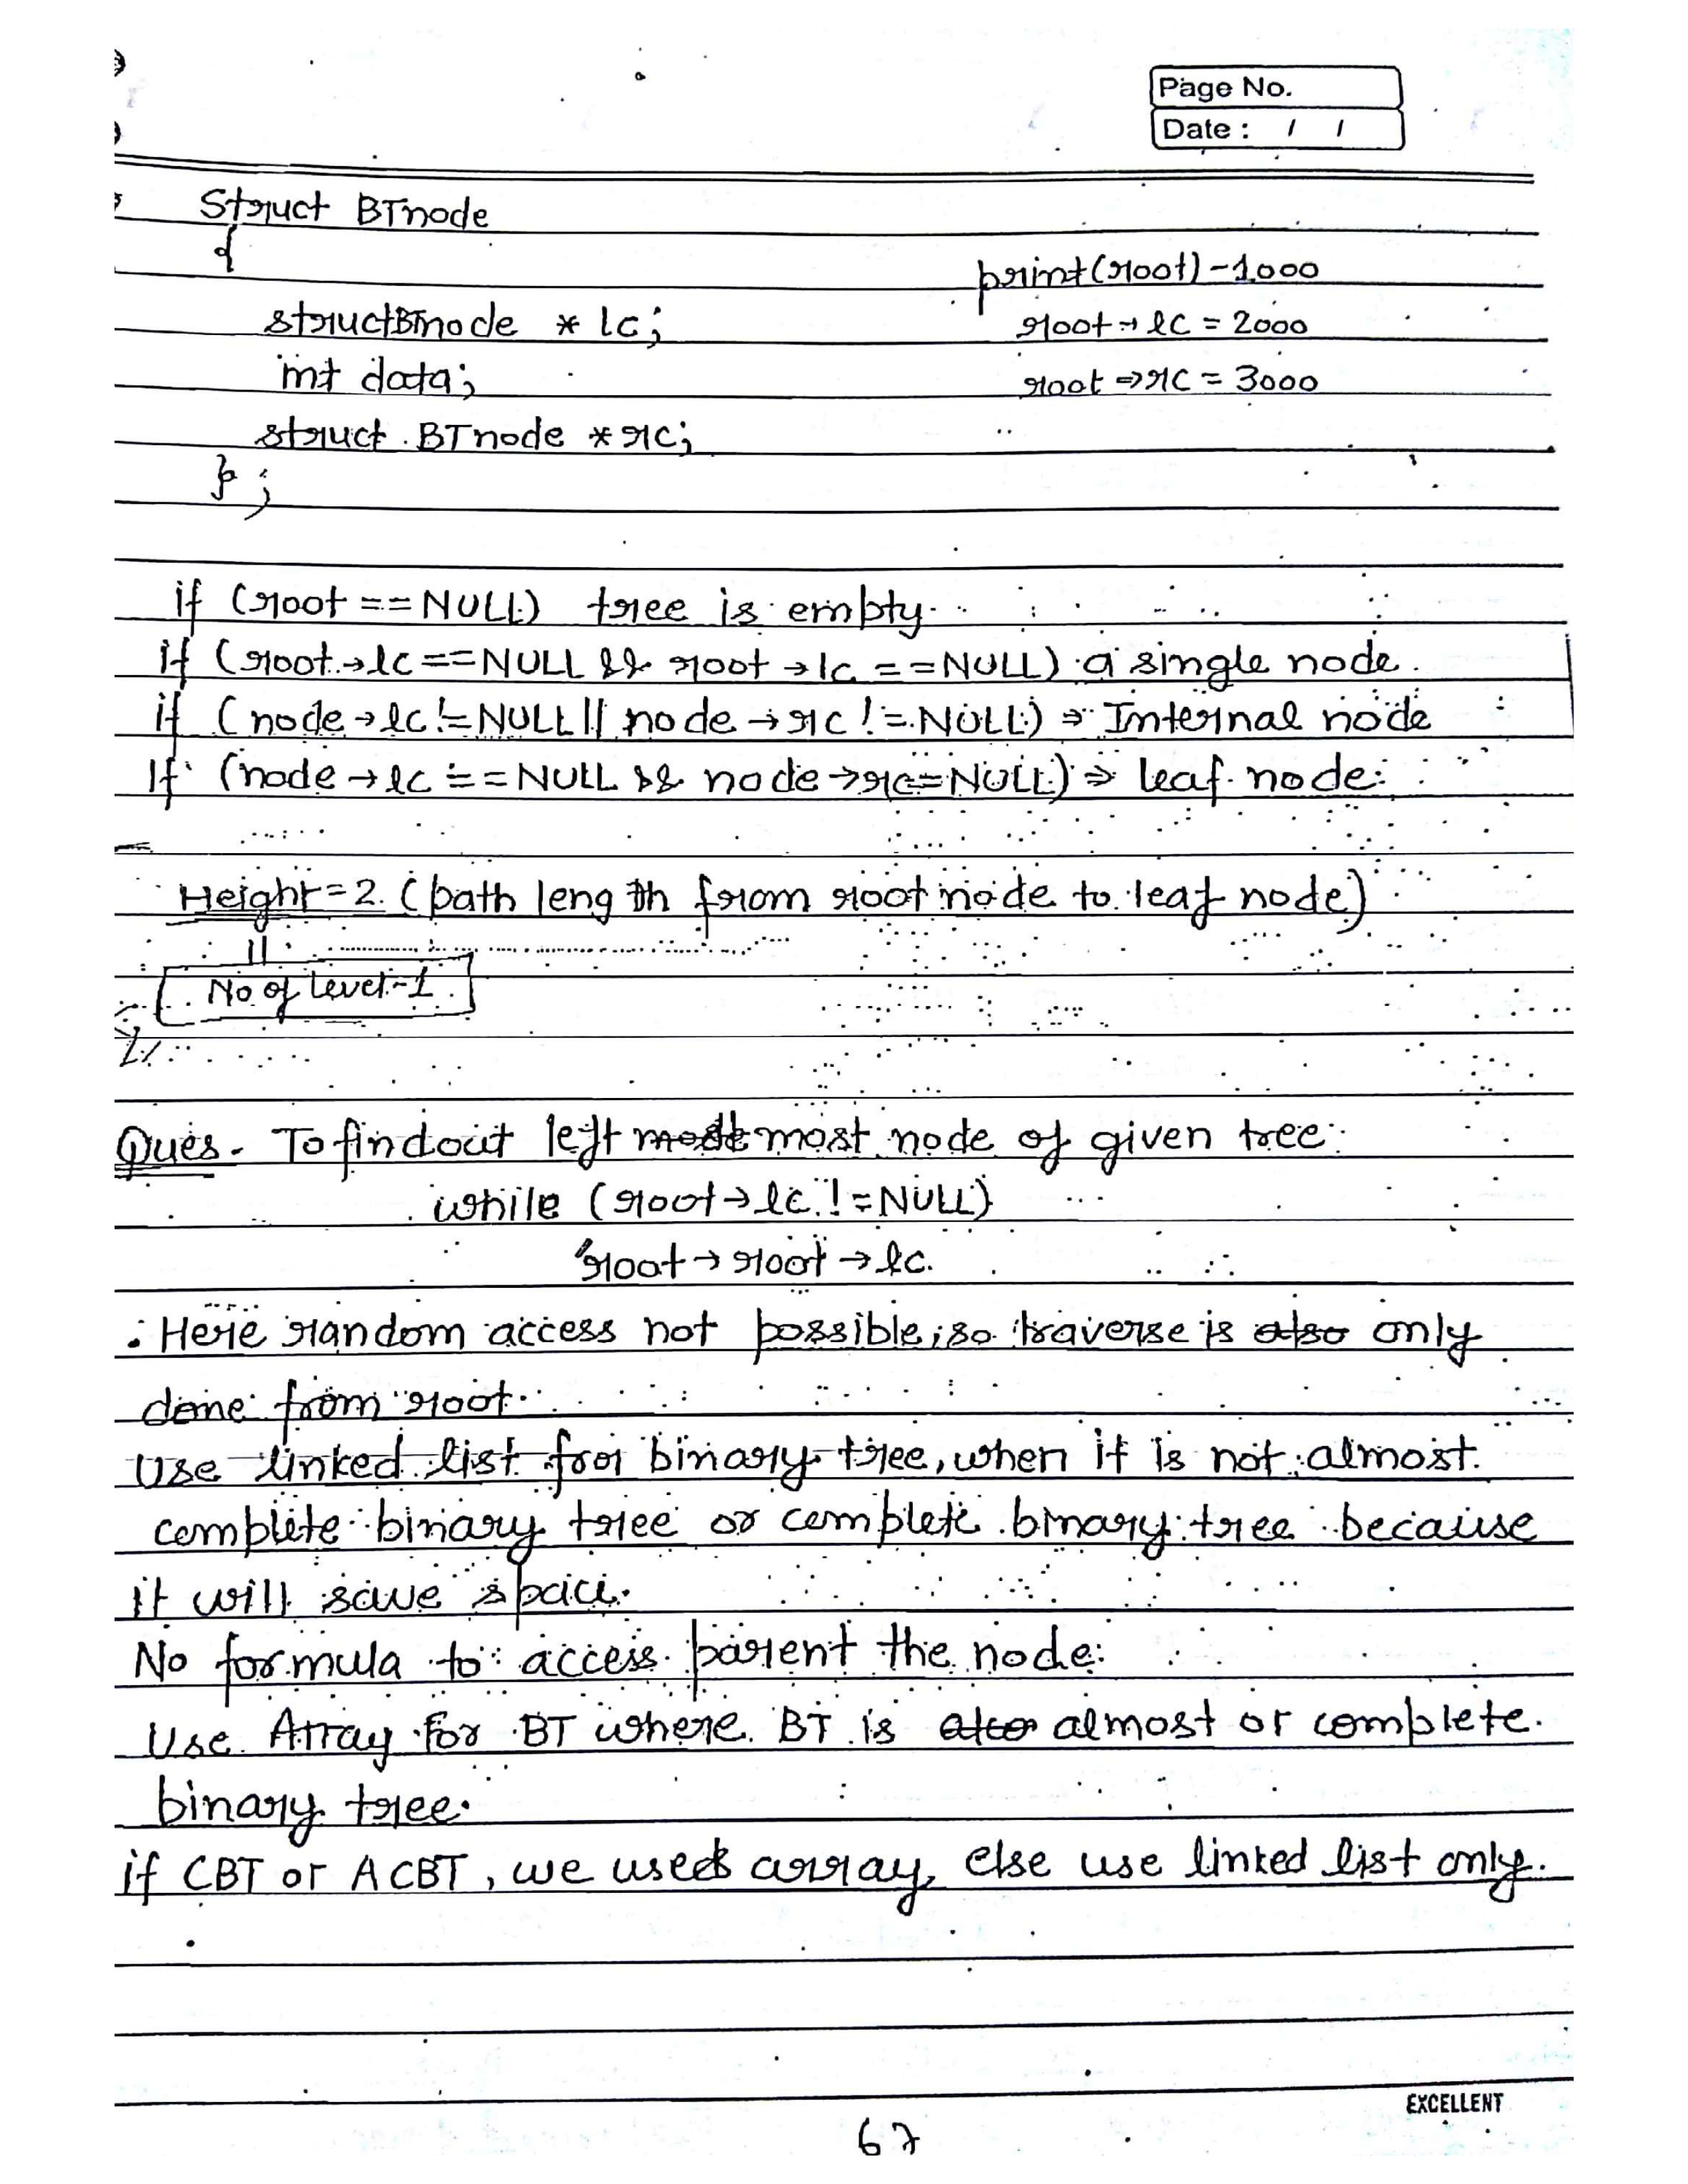 Page No.
Date : / /
Struct BTnode
{
print(root) - 1000
structBTnode * lc;
root → lc = 2000
int data;
root ⇒ rc = 3000
struct BTnode * rc;
};
if (root == NULL) tree is empty.
if (root → lc == NULL && root → lc == NULL) a single node.
if (node → lc != NULL || node → rc != NULL) ⇒ Internal node
If (node → lc == NULL && node → rc = NULL) ⇒ leaf node.
Height = 2. (path length from root node to leaf node)
||
No of level - 1
Ques. To find out left most node of given tree:
while (root → lc != NULL)
root → root → lc.
. Here random access not possible, so traverse is also only
done from root.
Use linked list for binary tree, when it is not almost
complete binary tree or complete binary tree because
it will save space.
No formula to access parent the node.
Use Array for BT where BT is also almost or complete
binary tree.
if CBT or ACBT, we used array, else use linked list only.
EXCELLENT
67